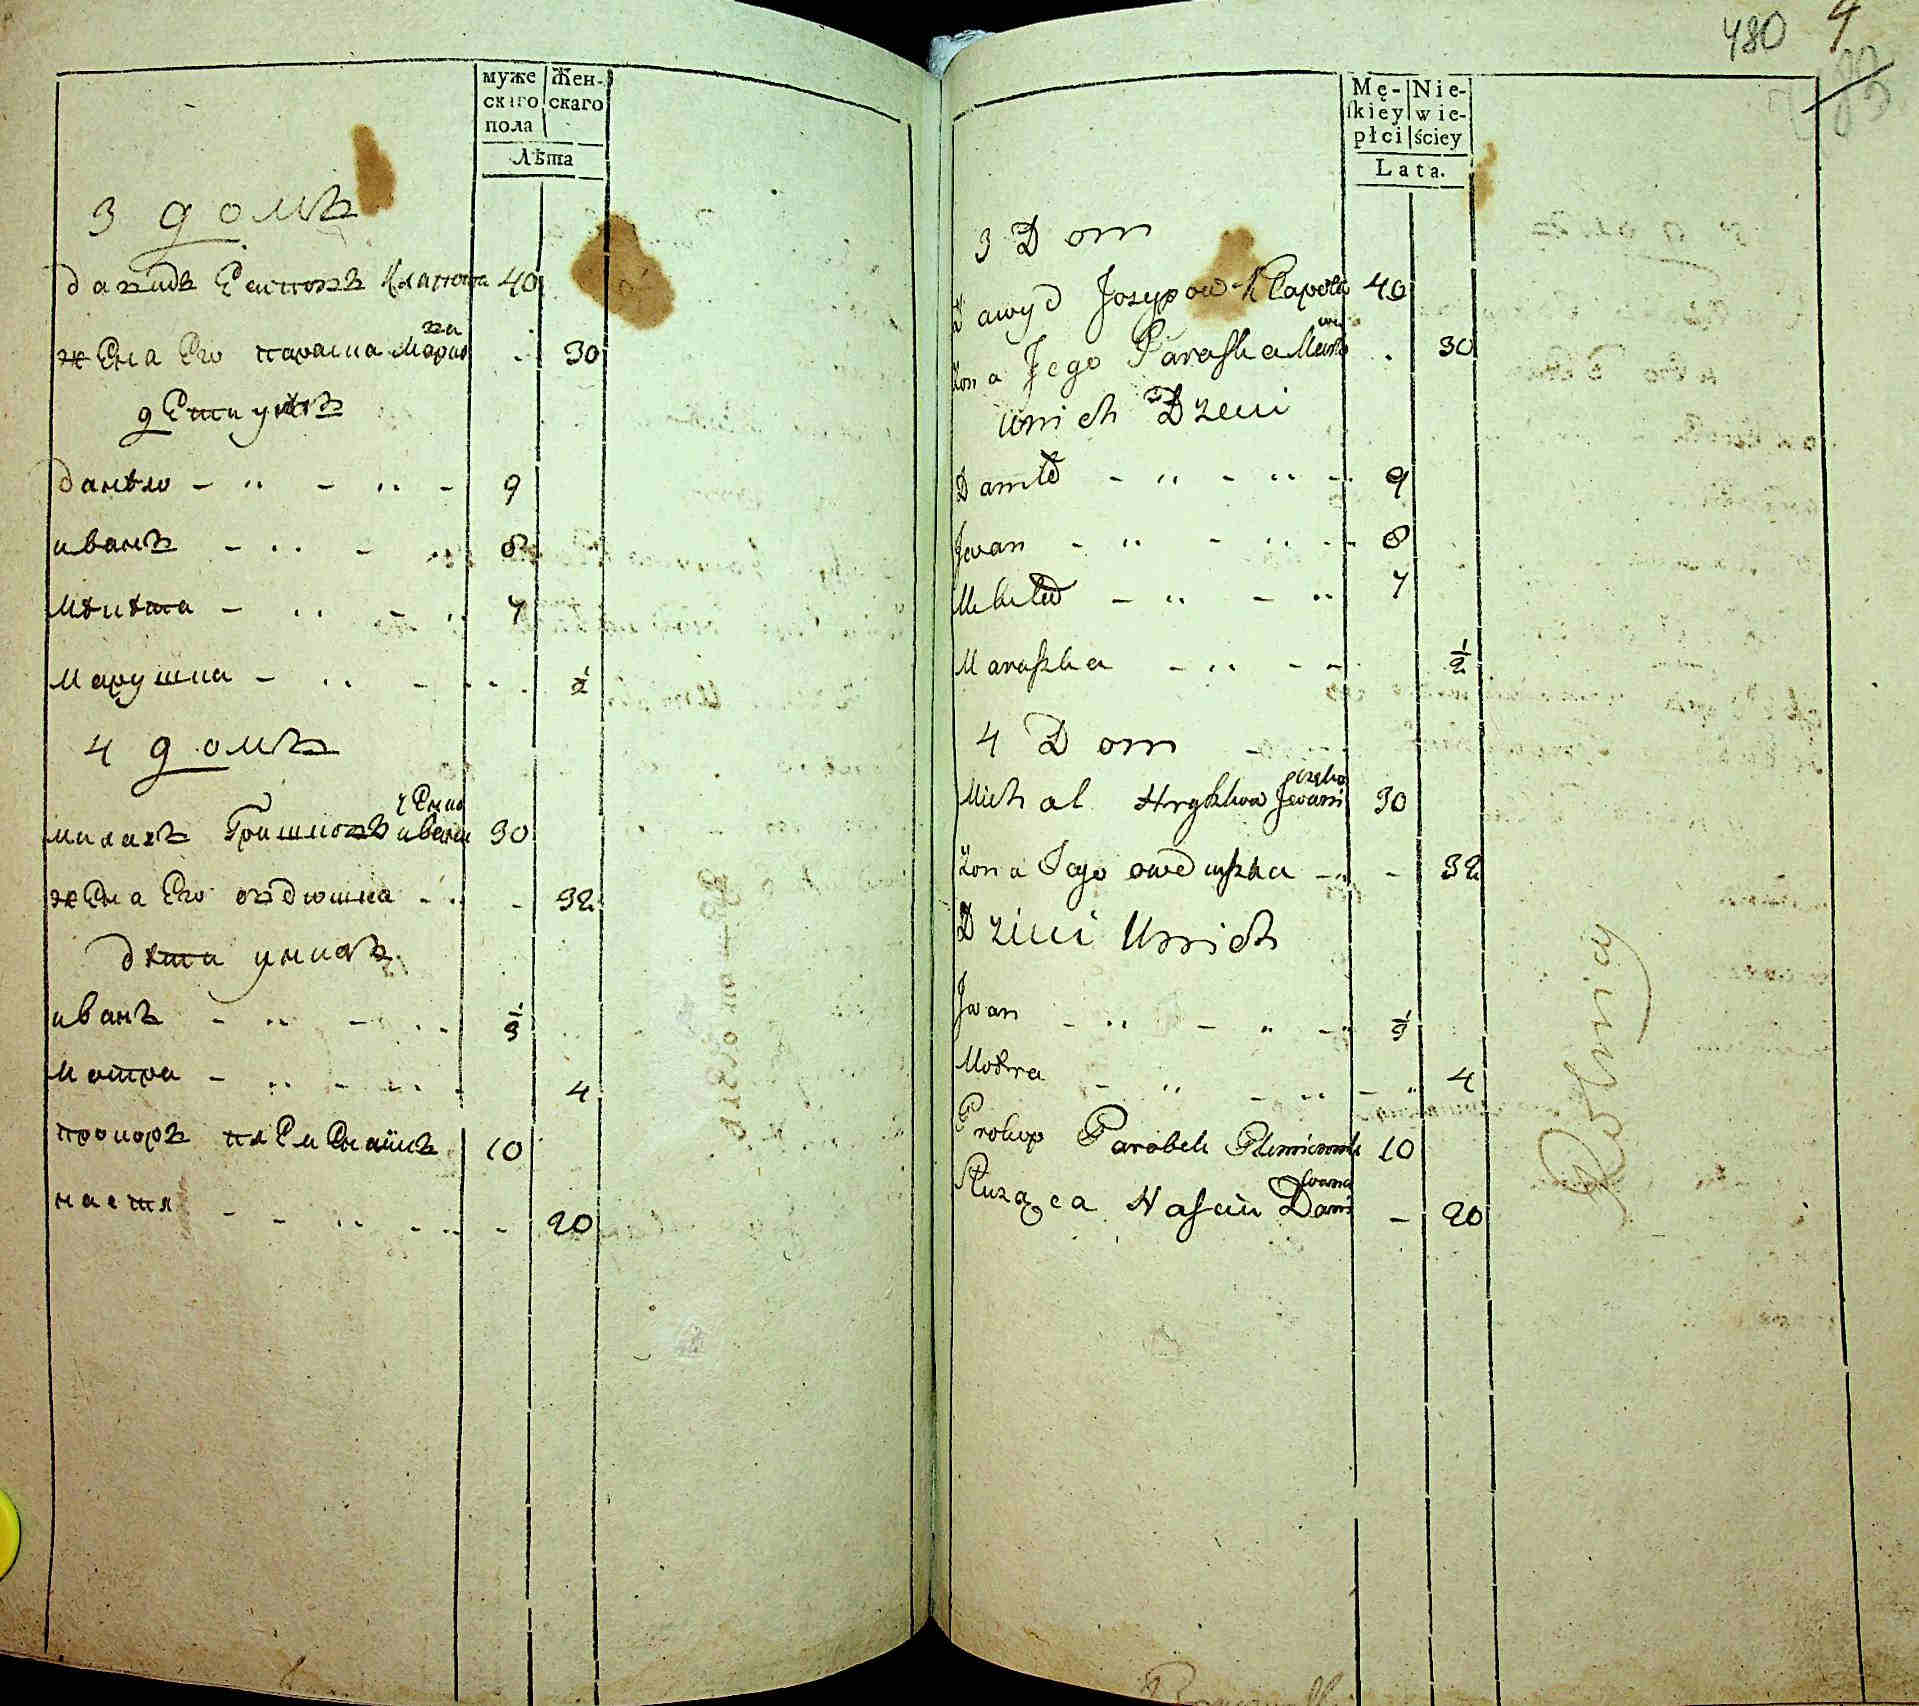 муже
скаго
пола
Жен-
скаго
Лѣта
3 домъ
давидъ Есиповъ Клапота 40
на
жена Его параска Марко 30
дети унихъ
данѣло - „ - „ - 9
иванъ - „ - „ 8
Мѣкѣта - „ - „ 7
Марушка - „ - „ 1/2
4 домъ
михалъ Гришковъ ивани 30
жена Его овдюшка - „ - 32
дѣти унихъ
иванъ - „ - „ - 1/3
Мотра - „ - „ - 4
прокопъ племеникъ 10
настя - - „ - „ - 20
480 4
Mę-
skiey
płci
Nie-
wie-
ściey
Lata.
3 Dom
Dawyd Jozypow Kłapota 40
żona Jego Paraska 30
unich Dzeci
Daniło - „ - „ - 9
Jwan - „ - „ - 8
Mekita - „ - „ 7
Maraszka - „ - - 1/2
4 Dom
Michal Hryszkow Jwani 30
żona Jego owduszka - „ - 32
Dzieci Unich
Jwan - „ - „ - „ 1/3
Motra - „ - „ - „ 4
Prokop Parobek 10
Służąca Nascia - 20
Rolnicy